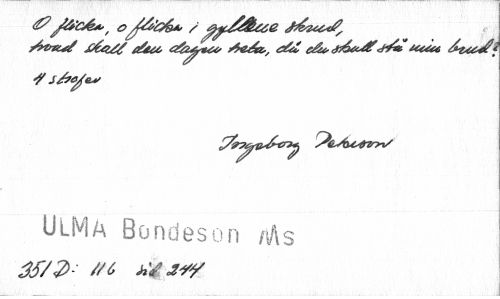 O flicka, o flicka i gyllene skrud,
hvad skall den dagen heta, då du skall stå min brud?
4 strofer
Ingeborg Peterson
ULMA Bondeson Ms
351 D: 116 sid 244